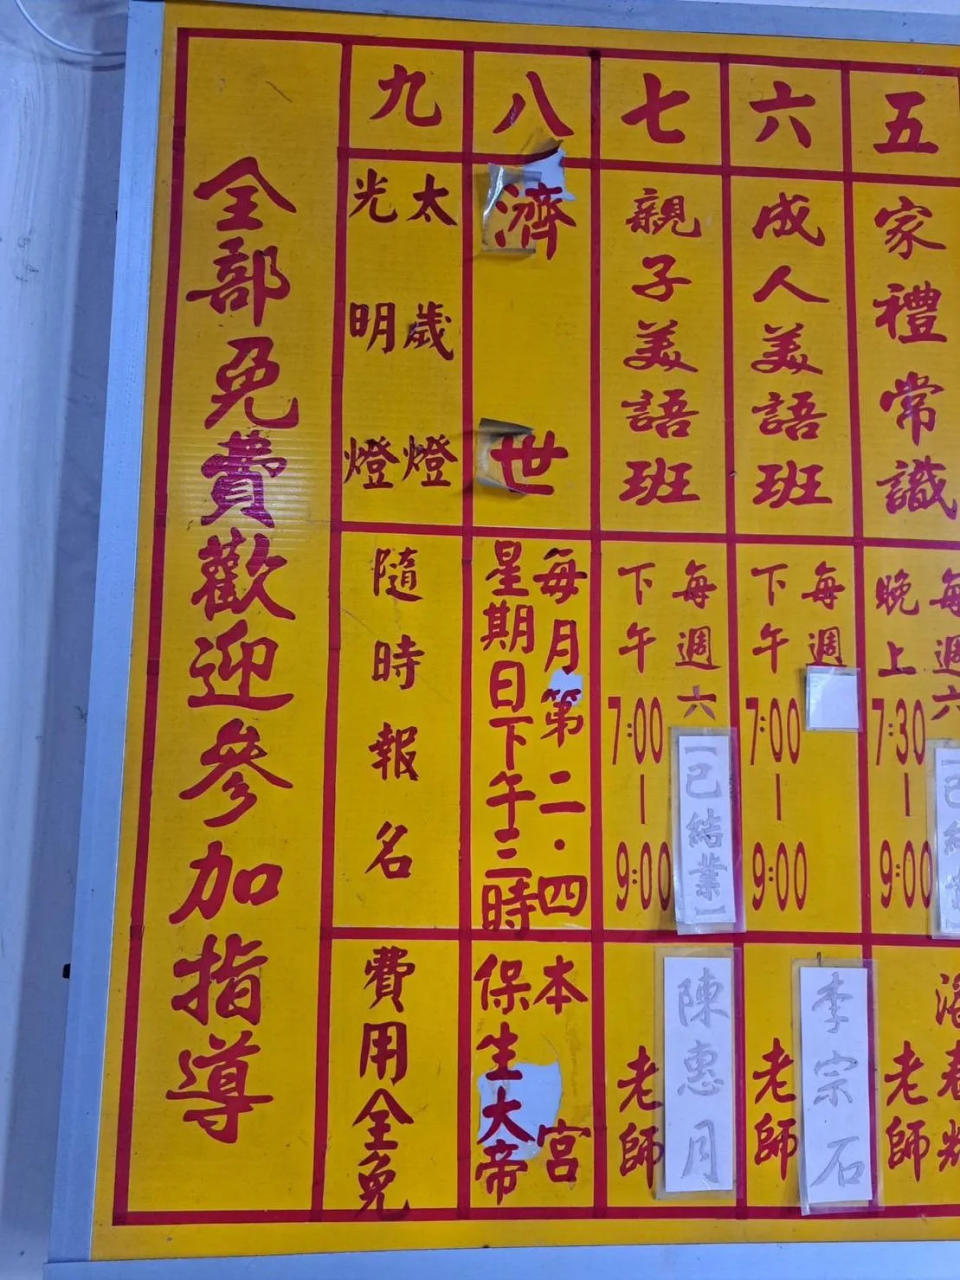 五
家禮常識
每週六
晚上7:30-9:00
老師
六
成人美語班
每週
下午7:00-9:00
李宗石
老師
七
親子美語班
每週六
下午7:00-9:00
【已結業】
陳惠月
老師
八
濟世
每月第二.四
星期日下午三時
本宮
保生大帝
九
太歲燈
光明燈
隨時報名
費用全免
全部免費歡迎參加指導